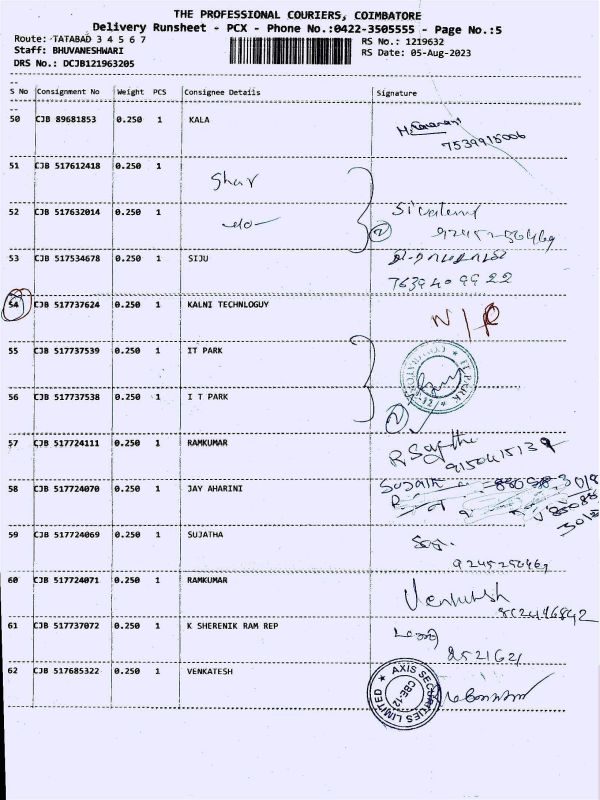 THE PROFESSIONAL COURIERS, COIMBATORE
Delivery Runsheet - PCX - Phone No.:0422-3505555 - Page No.:5
Route: TATABAD 3 4 5 6 7
RS No.: 1219632
Staff: BHUVANESHWARI
RS Date: 05-Aug-2023
DRS No.: DCJB121963205
S No Consignment No Weight PCS Consignee Details Signature
50 CJB 89681853 0.250 1 KALA
7539915006
51 CJB 517612418 0.250 1
Shar
52 CJB 517632014 0.250 1 -do-
2
53 CJB 517534678 0.250 1 SIJU
7639409922
54 CJB 517737624 0.250 1 KALNI TECHNLOGUY
55 CJB 517737539 0.250 1 IT PARK
56 CJB 517737538 0.250 1 I T PARK
2
57 CJB 517724111 0.250 1 RAMKUMAR
58 CJB 517724070 0.250 1 JAY AHARINI
59 CJB 517724069 0.250 1 SUJATHA
60 CJB 517724071 0.250 1 RAMKUMAR
61 CJB 517737072 0.250 1 K SHERENIK RAM REP
252162
62 CJB 517685322 0.250 1 VENKATESH
AXIS SECURITIES LIMITED
CBE-12